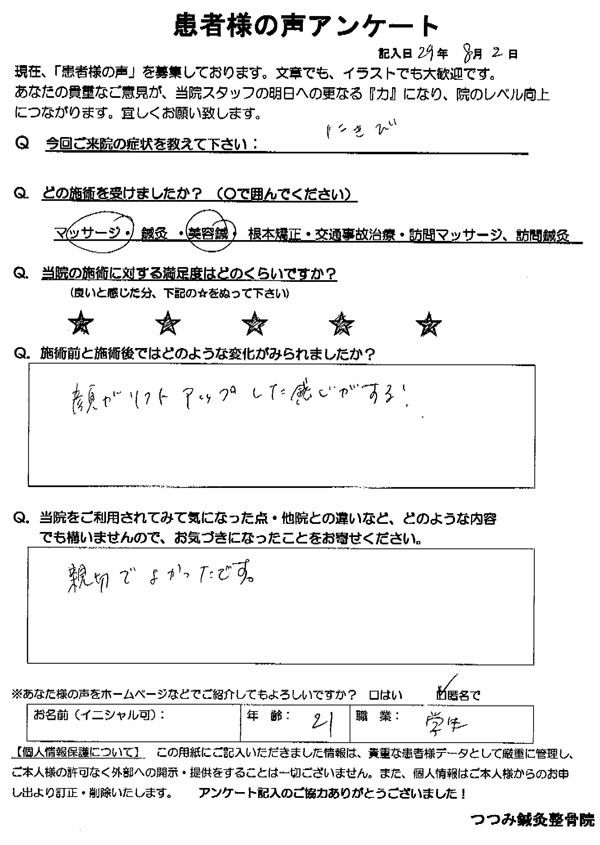 患者様の声アンケート
記入日 29年 8月 2日
現在、「患者様の声」を募集しております。文章でも、イラストでも大歓迎です。
あなたの貴重なご意見が、当院スタッフの明日への更なる『力』になり、院のレベル向上
につながります。宜しくお願い致します。
Q 今回ご来院の症状を教えて下さい： にきび
Q. どの施術を受けましたか？（〇で囲んでください）
マッサージ・ 鍼灸 ・美容鍼・ 根本矯正・交通事故治療・訪問マッサージ、訪問鍼灸
Q. 当院の施術に対する満足度はどのくらいですか？
（良いと感じた分、下記の☆をぬって下さい）
★ ★ ★ ★ ★
Q. 施術前と施術後ではどのような変化がみられましたか？
顔がリフトアップした感じがする！
Q. 当院をご利用されてみて気になった点・他院との違いなど、どのような内容
でも構いませんので、お気づきになったことをお寄せください。
親切でよかったです。
※あなた様の声をホームページなどでご紹介してもよろしいですか？ ☐はい ☑匿名で
お名前（イニシャル可）： 年 齢： 21 職 業： 学生
【個人情報保護について】 この用紙にご記入いただきました情報は、貴重な患者様データとして厳重に管理し、
ご本人様の許可なく外部への開示・提供をすることは一切ございません。また、個人情報はご本人様からのお申
し出より訂正・削除いたします。 アンケート記入のご協力ありがとうございました！
つつみ鍼灸整骨院